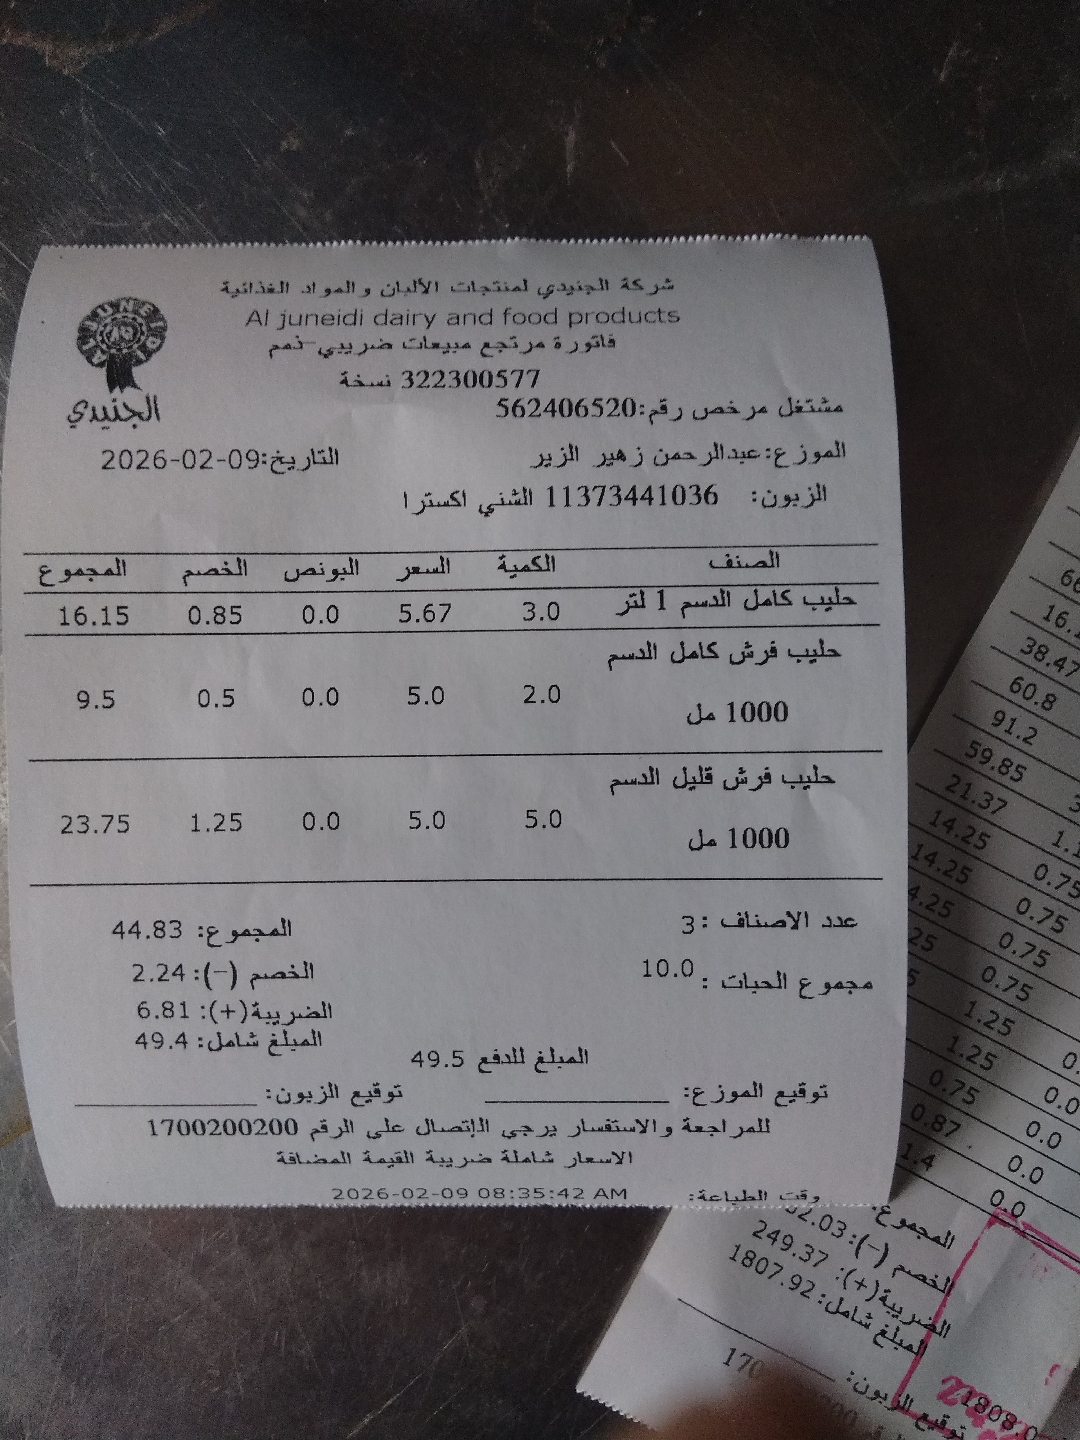 شركة الجنيدي لمنتجات الألبان والمواد الغذائية
Al juneidi dairy and food products
فاتورة مرتجع مبيعات ضريبي-ذمم
322300577 نسخة
AL JUNEIDI
الجنيدي
مشتغل مرخص رقم:562406520
الموزع:عبدالرحمن زهير الزير التاريخ:2026-02-09
الزبون: 11373441036 الشني اكسترا
الصنف الكمية السعر البونص الخصم المجموع
حليب كامل الدسم 1 لتر 3.0 5.67 0.0 0.85 16.15
حليب فرش كامل الدسم
1000 مل 2.0 5.0 0.0 0.5 9.5
حليب فرش قليل الدسم
1000 مل 5.0 5.0 0.0 1.25 23.75
عدد الاصناف :3 المجموع: 44.83
مجموع الحبات : 10.0 الخصم (-): 2.24
الضريبة(+): 6.81
المبلغ شامل: 49.4
المبلغ للدفع 49.5
توقيع الموزع: توقيع الزبون:
للمراجعة والاستفسار يرجى الإتصال على الرقم 1700200200
الاسعار شاملة ضريبة القيمة المضافة
وقت الطباعة: 2026-02-09 08:35:42 AM
38.47
60.8
91.2
59.85
21.37
14.25 0.75
14.25 0.75
0.75
0.75
1.25
1.25 0.0
0.75 0.0
0.87 0.0
1.4 0.0
المجموع:
الخصم (-):
الضريبة(+): 249.37
المبلغ شامل: 1807.92
توقيع الزبون: